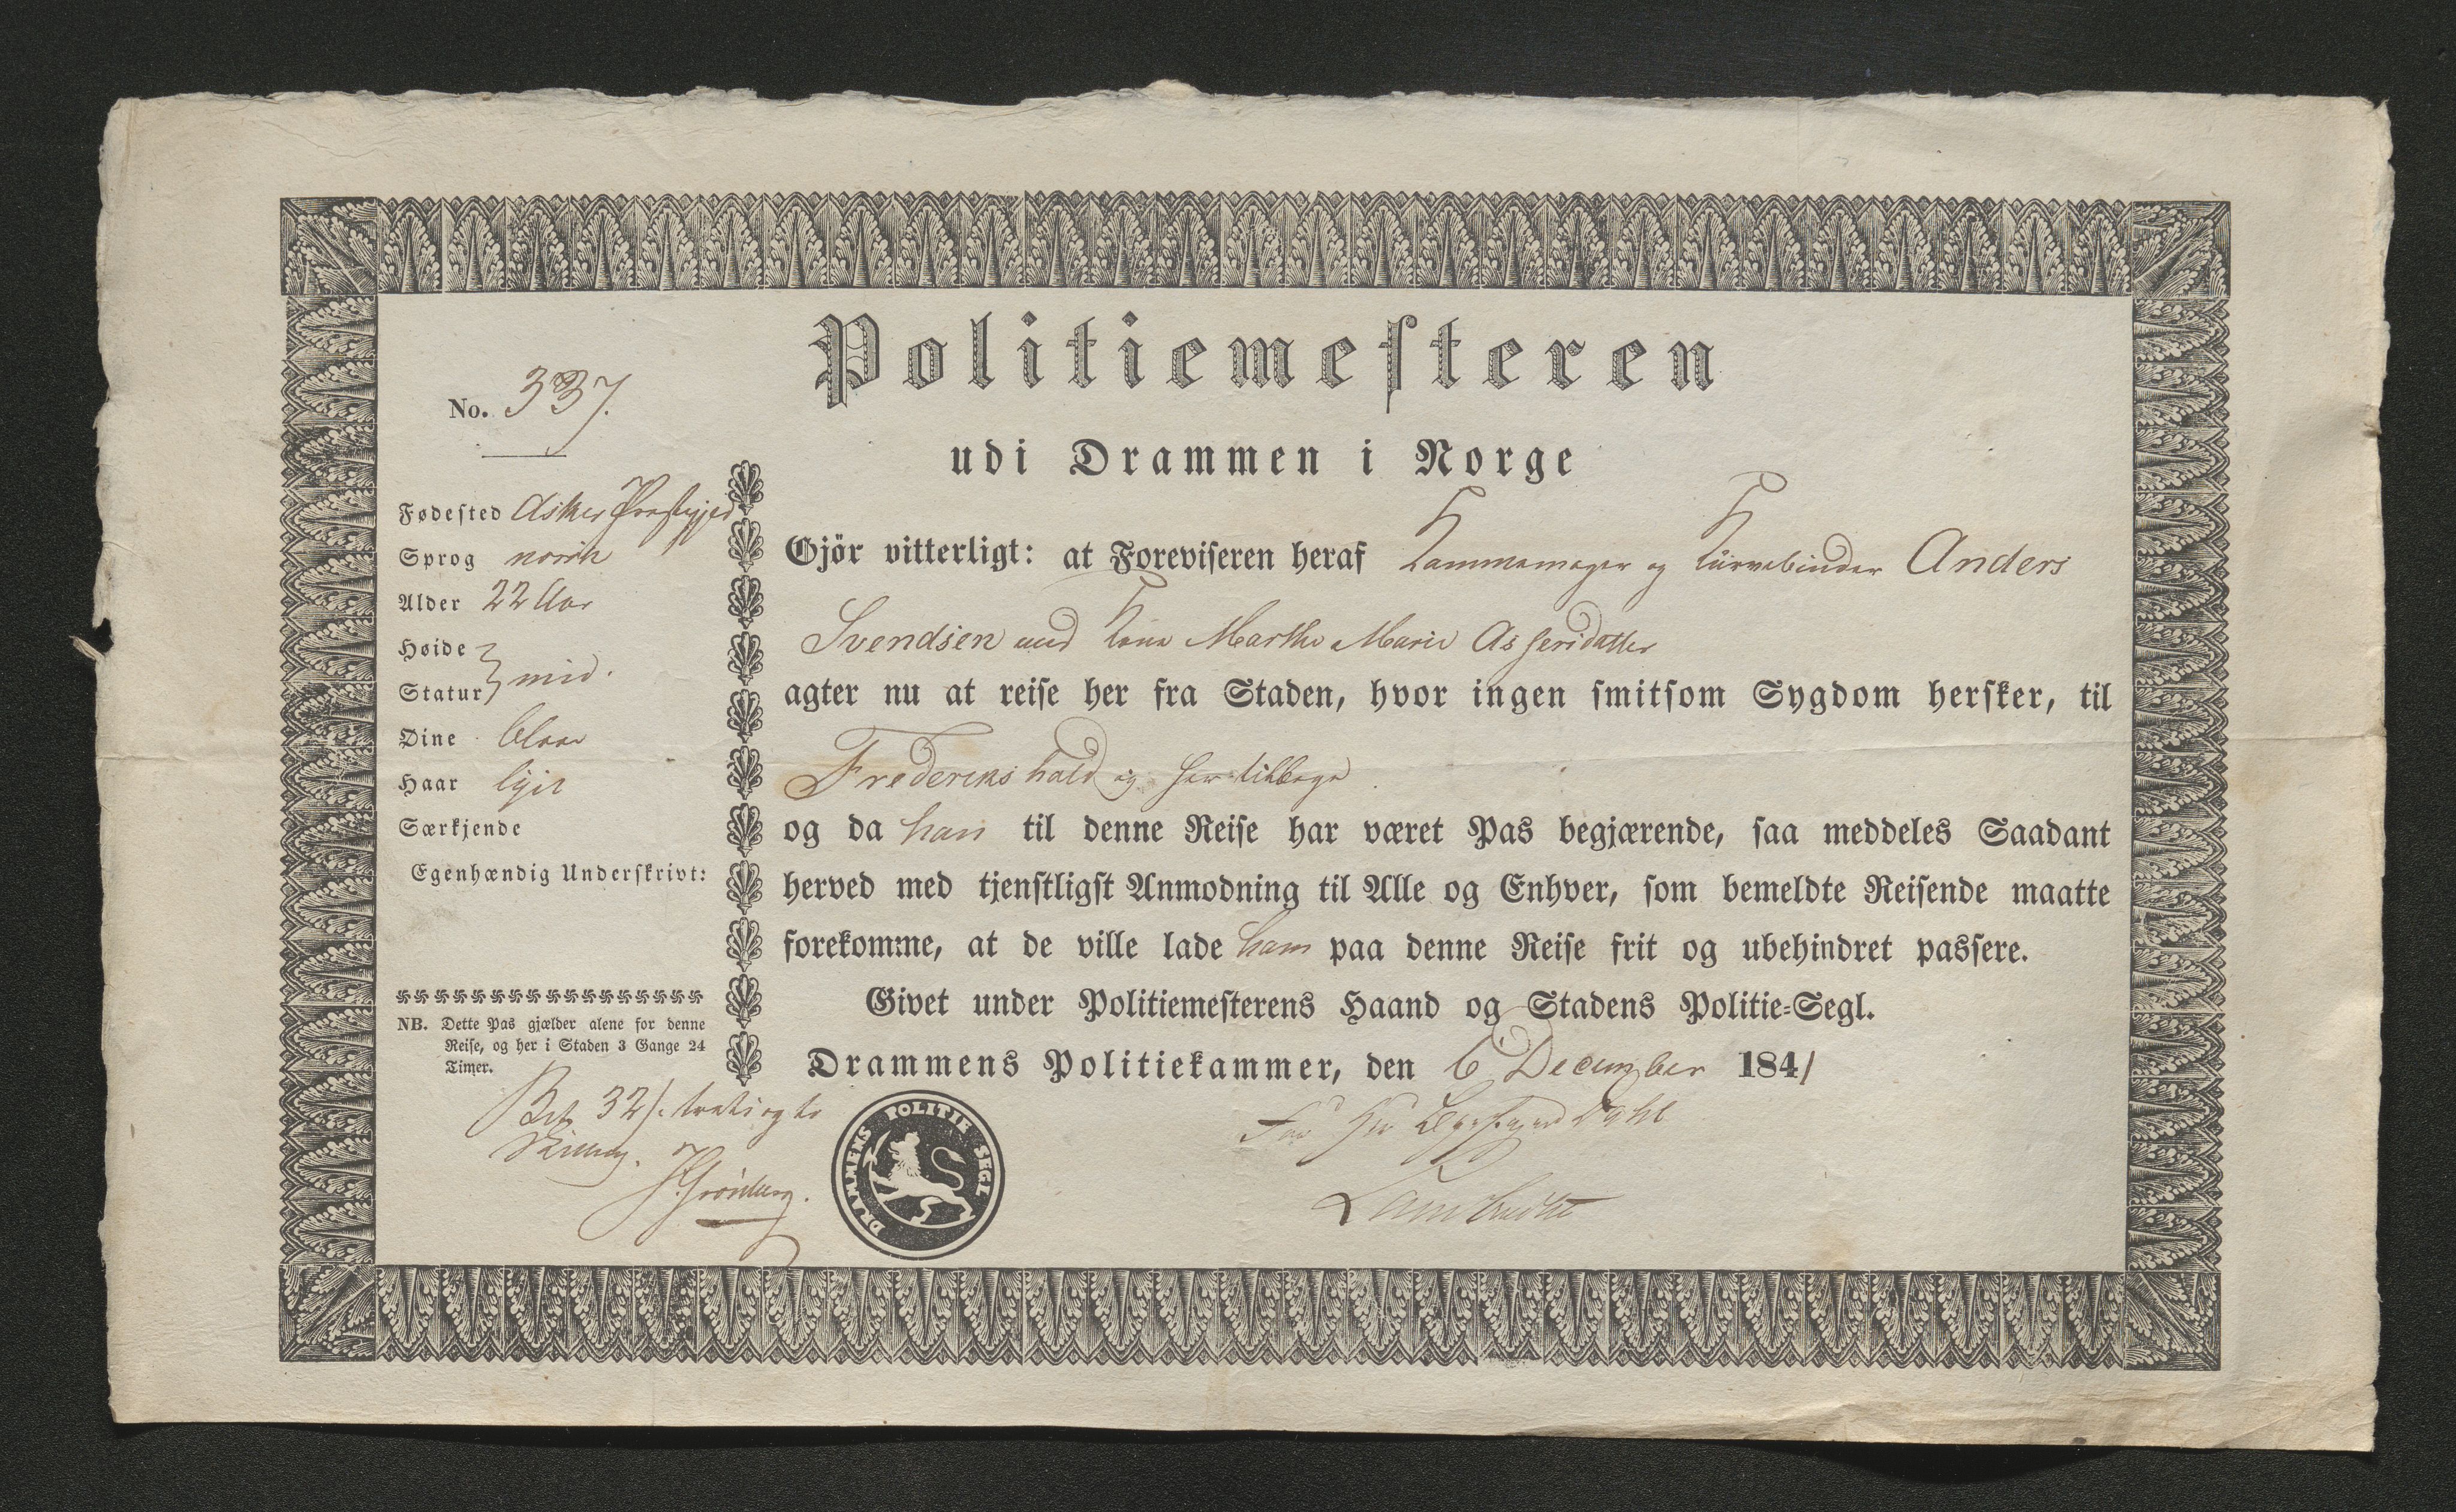 Politiemesteren
udi Drammen i Norge
No. 337.
Fødested Asker Præstegjed
Sprog norsk
Alder 22 Aar
Høide
Statur mid.
Øine blaae
Haar lyst
Særkjende
Egenhændig Underskrivt:
NB. Dette Pas gjælder alene for denne
Reise, og her i Staden 3 Gange 24
Timer.
Bet 32 s. treti og to
Skilling.
Gjör vitterligt: at Foreviseren heraf Kammemager og Kurvebinder Anders
Svendsen med Kone Marthe Marie Assersdatter
agter nu at reise her fra Staden, hvor ingen smitsom Sygdom hersker, til
Frederikshald og her tilbage
og da han til denne Reise har været Pas begjærende, saa meddeles Saadant
herved med tjenstligst Anmodning til Alle og Enhver, som bemeldte Reisende maatte
forekomme, at de ville lade ham paa denne Reise frit og ubehindret passere.
Givet under Politiemesterens Haand og Stadens Politie-Segl.
Drammens Politiekammer, den 6 December 1841
DRAMMENS POLITIE SEGL